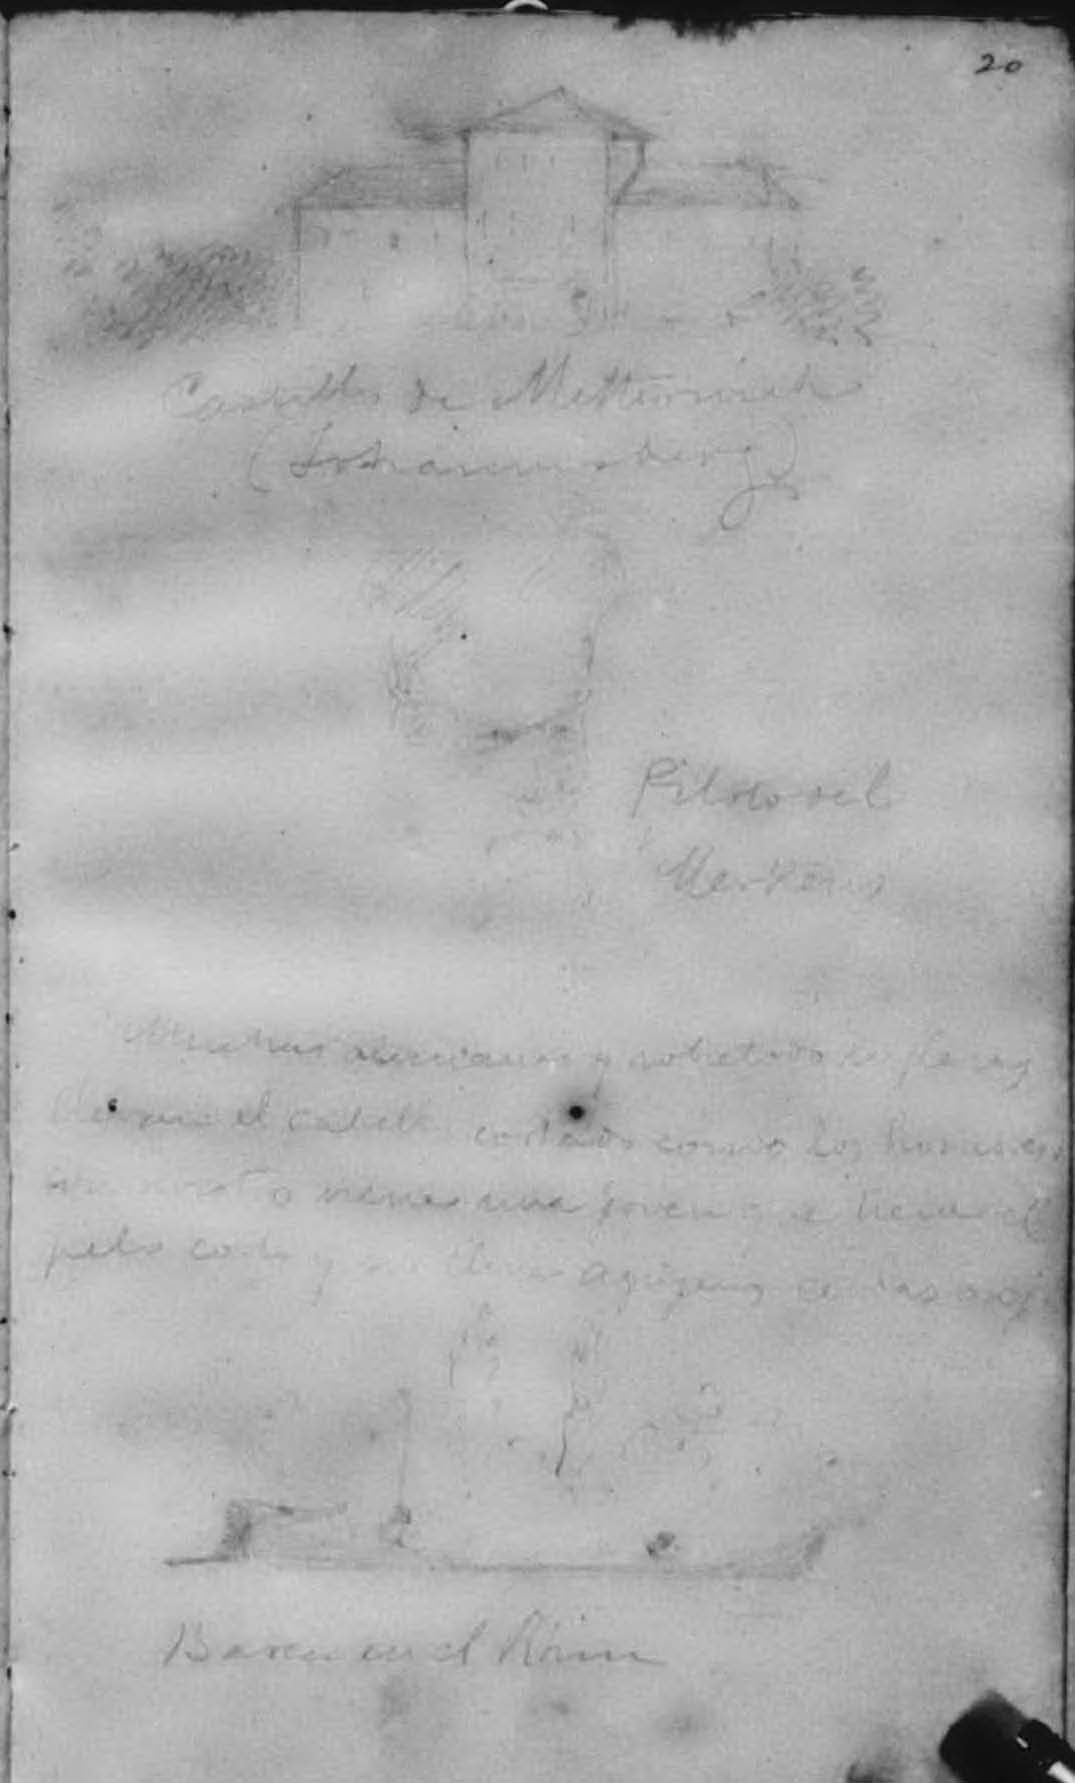 20
Castillo de Metternich
(Johannisberg)
Piloto del
Merkens
Muchas alemanas y sobre todo
el cabello cortado como los hombres
viene una joven que lleva el
pelo corto y no lleva
Barca en el Rhin